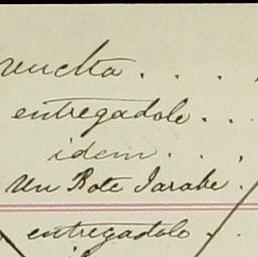 vuelta . . . .
entregadole . . .
idem . . . .
Un Bote Jarabe .
entregadole . .